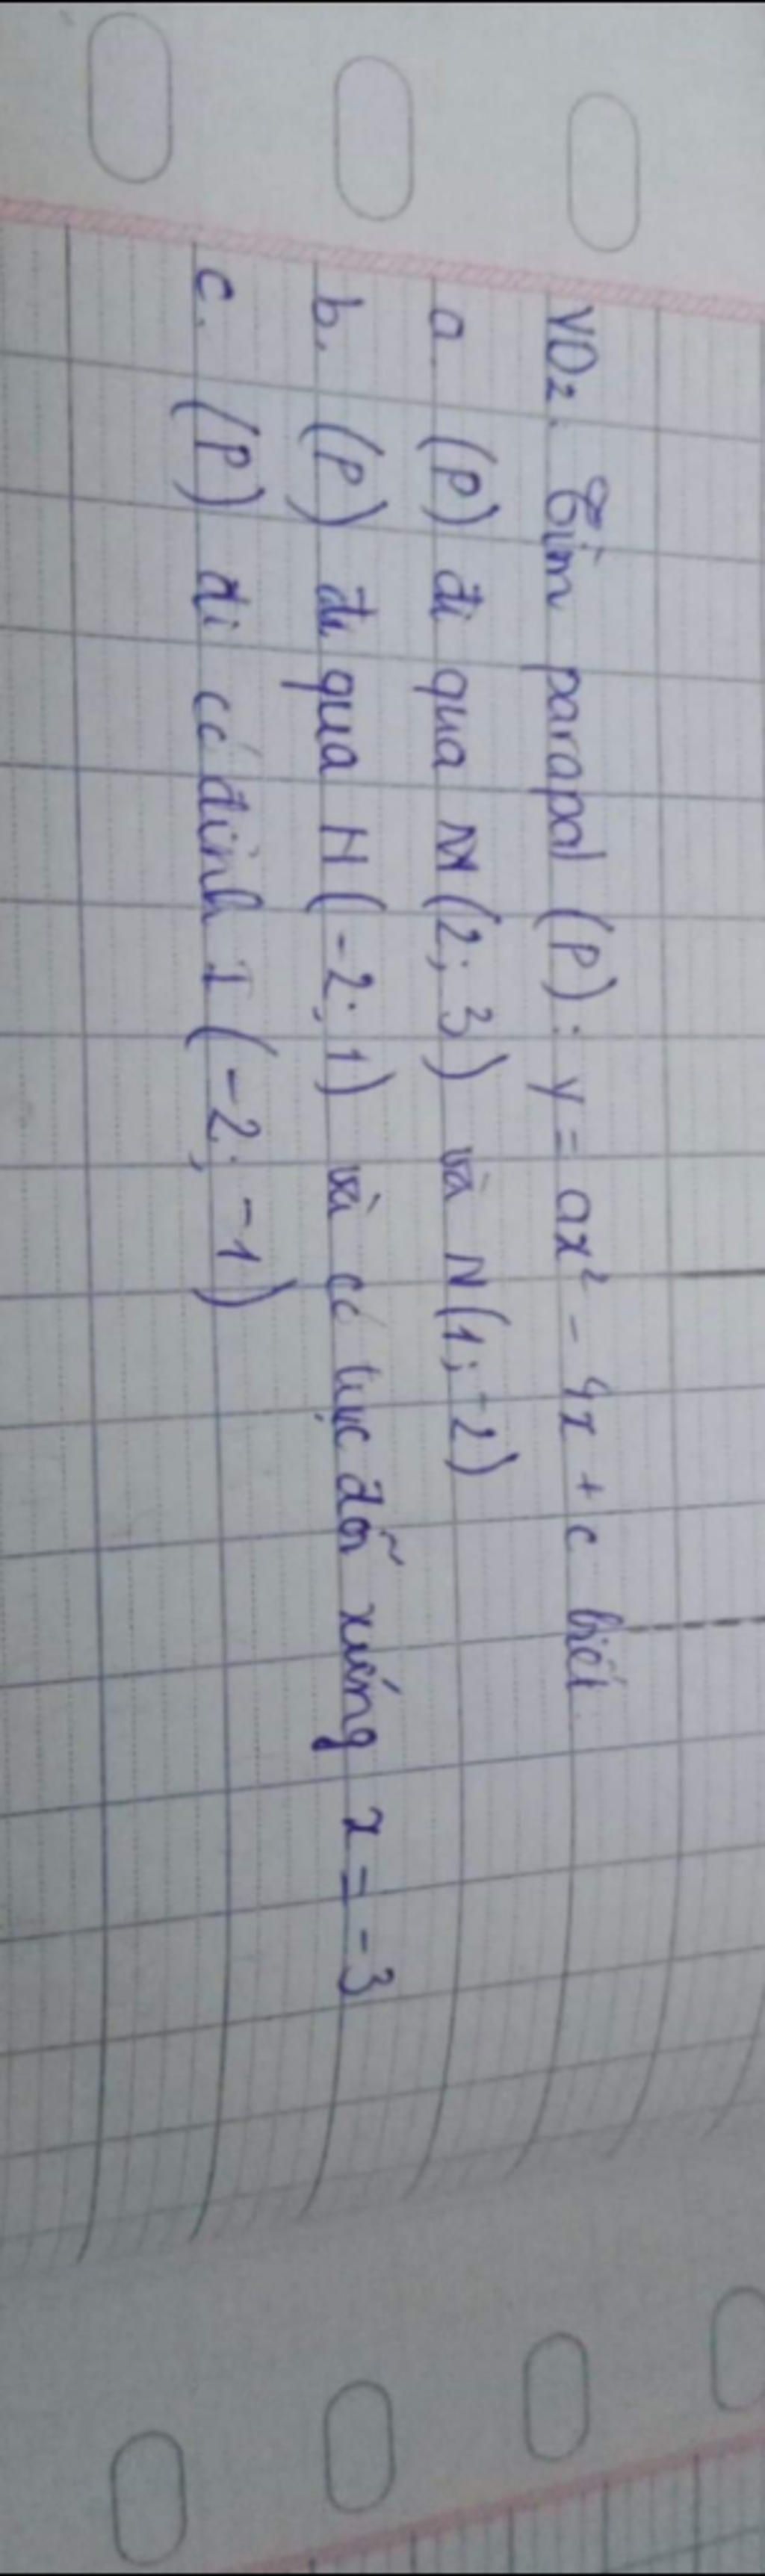 VD2: Tìm parapol (P): y = ax² - 4x + c biết
a. (P) đi qua M(2; 3) và N(1; -2)
b. (P) đi qua H(-2; 1) và có trục đối xứng x = -3
c. (P) đi có đỉnh I(-2; -1)